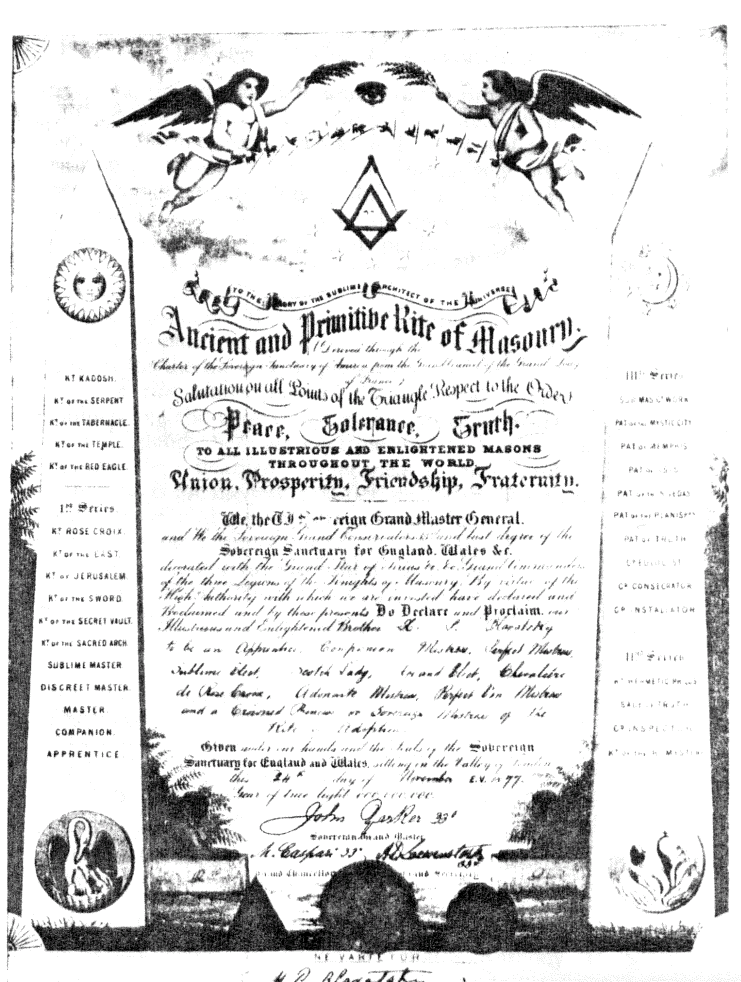 TO THE GLORY OF THE SUBLIME ARCHITECT OF THE UNIVERSE
Ancient and Primitive Rite of Masonry,
(Derived through the
Charter of the Sovereign Sanctuary of America from the Grand Council of the Grand
of France)
Salutation on all Points of the Triangle Respect to the Order
Peace, Tolerance, Truth.
TO ALL ILLUSTRIOUS AND ENLIGHTENED MASONS
THROUGHOUT THE WORLD
Union, Prosperity, Friendship, Fraternity.
We, the Sovereign Grand Master General.
and We the Sovereign Grand Conservators and last degree of the
Sovereign Sanctuary for England, Wales &c.
decorated with the Grand Star of Sirius &c &c Grand Commanders
of the three Legions of the Knights of Masonry, By virtue of the
High Authority with which we are invested have declared and
Proclaimed and by these presents Do Declare and Proclaim, our
Illustrious and Enlightened Brother H. P. Blavatsky
to be an Apprentice Companion Mistress, Perfect Mistress,
Sublime Elect, Scotch Lady, Grand Elect, Chevaliere
de Rose Croix, Adonaite Mistress, Perfect Mistress
and a Crowned Princess of the
Rite of Adoption.
Given under our hands and the Seals of the Sovereign
Sanctuary for England and Wales, sitting in the Valley of London
this 24th day of November E.V. 1877
Year of true light 000,000,000
John Yarker 33°
Sovereign Grand Master
M. Caspari 33° A D Loewenstark
Grand Chancellor Grand Secretary
KT KADOSH.
KT OF THE SERPENT
KT OF THE TABERNACLE.
KT OF THE TEMPLE.
KT OF THE RED EAGLE.
1st Series
KT ROSE CROIX.
KT OF THE EAST.
KT OF JERUSALEM.
KT OF THE SWORD.
KT OF THE SECRET VAULT.
KT OF THE SACRED ARCH.
SUBLIME MASTER
DISCREET MASTER
MASTER.
COMPANION.
APPRENTICE
IIIrd Series
PAT OF THE MYSTIC CITY
PAT OF MEMPHIS
PAT OF ISIS
PAT OF THE VEDAS
PAT OF THE PLANISPH
PAT OF TRUTH
GR CONSECRATOR
GR INSTALLATOR
IInd Series
KT HERMETIC PHILOS
SAGE OF TRUTH
GR INSPECTOR
NE VARIETUR
H. P. Blavatsky